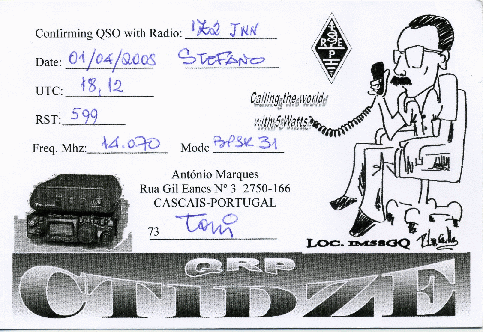 Confirming QSO with Radio: IZ2 JNN
Date: 01/04/2005 STEFANO
UTC: 18,12
RST: 599
Freq. Mhz: 14.070 Mode BPSK 31
R E P
Calling the world
with 5 Watts
António Marques
Rua Gil Eanes Nº 3 2750-166
CASCAIS-PORTUGAL
73 Toni
LOC. IM58GQ
QRP
CT1DZE